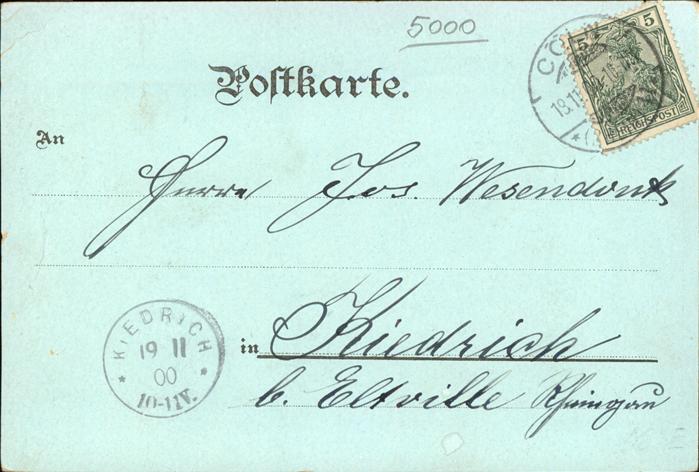 5000
CÖLN
5 5
REICHSPOST
Postkarte.
An
Herrn Jos. Wesendonk
KIEDRICH
19 11
00
10-11V.
in Kiedrich
b. Eltville Rheingau